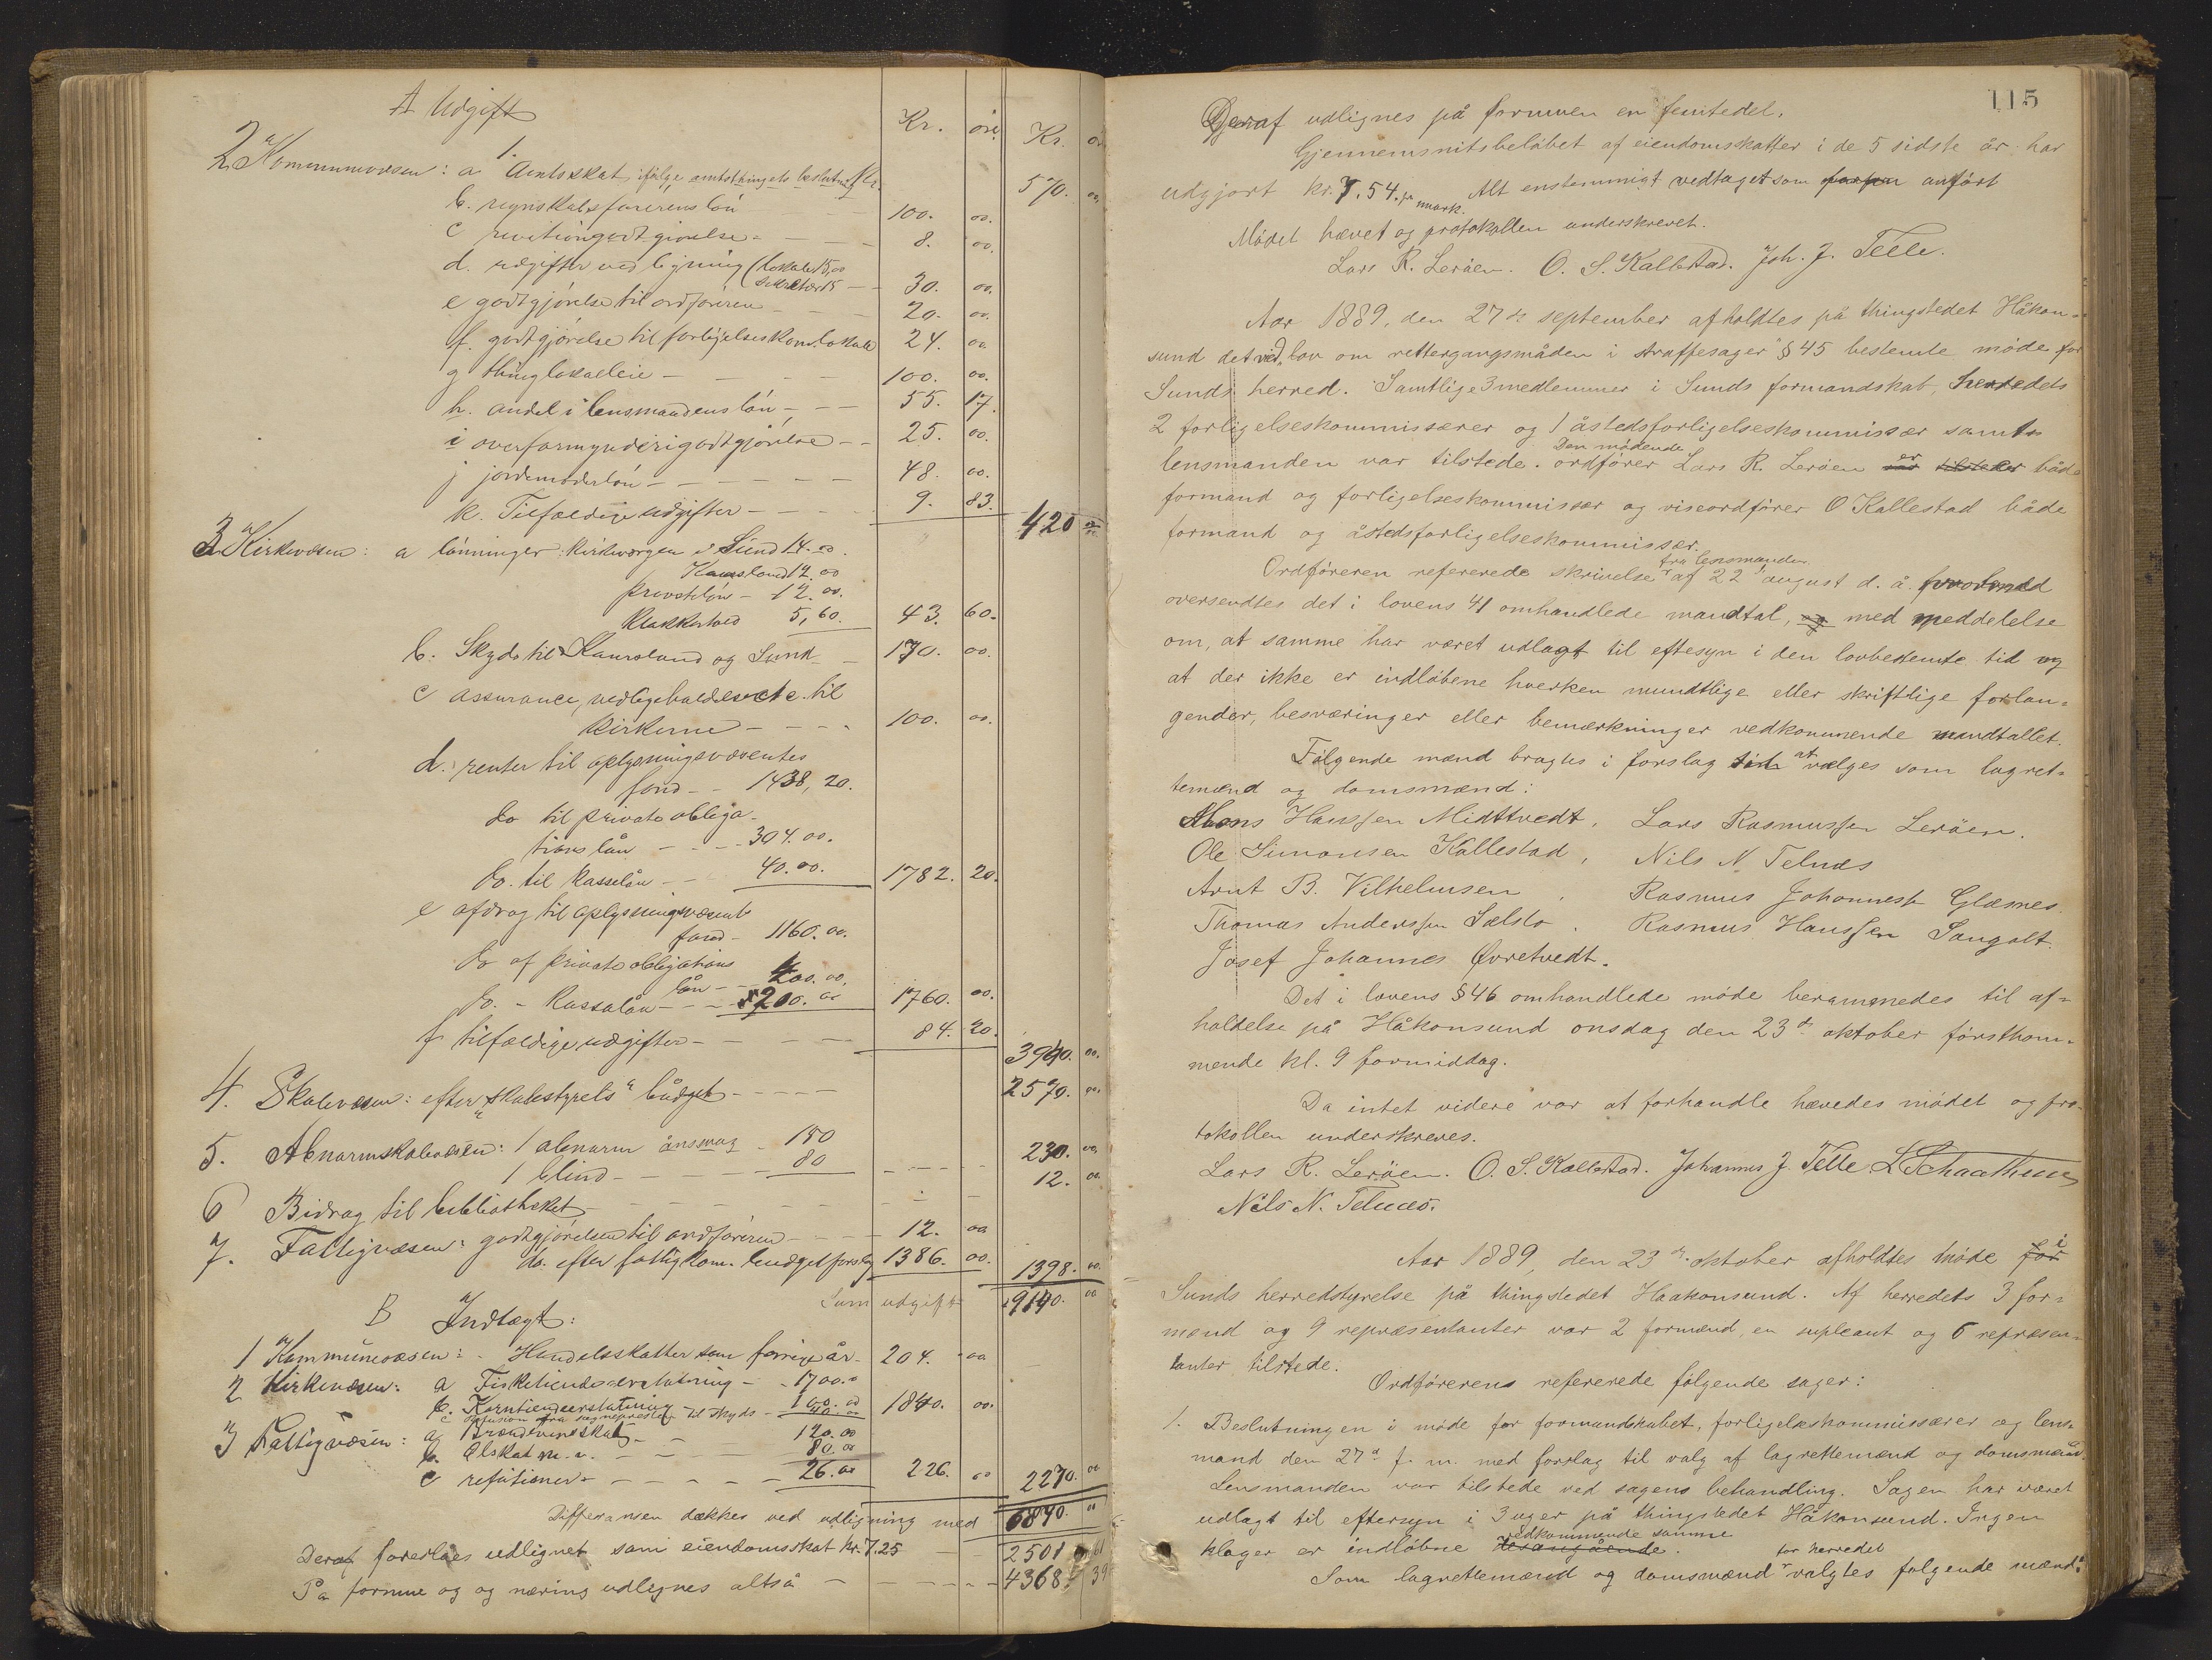 A Udgift
Kr. øre Kr.
1.
2 Kommunevæsen: a Amtsskat, ifølge amtsthingets beslutning 570. 00
b. regnskabsførerens løn 100. 00.
c revitiongodtgjørelse 8. 00.
d. udgifter ved ligning (Lokale 15,00
Sekretær 15 30. 00.
e godtgjørelse til ordføreren 20. 00.
f. godtgjørelse til forligelseskom. lokale 24. 00
g thinglokalleie 100. 00.
h. andel i lensmandens løn 55. 17.
i overformynderigodtgjørelse 25. 00.
j jordemoderløn 48. 00.
k. Tilfældige udgifter 9. 83. 420 00
3 Kirkevæsen: a lønninger: kirkevergen i Sund 14.00.
Kausland 12.00
Provsteløn - 12.00.
Klokkertold 5,60. 43. 60.
b. Skyds til Kausland og Sund 170. 00.
c assurance, vedligeholdelse etc. til
kirkerne 100. 00.
d. renter til oplysningsvæsentes
fond - 1438,20.
do til private obliga-
tions lån - 304.00.
do. til kasselån - 40.00. 1782. 20.
e afdrag til oplysningsvæsents
fond - 1160.00.
do af private obligations
lån - 400.00.
do. - Kassalån - 200.00 1760. 00.
f tilfældige udgifter 84. 20.
3940. 00.
4. Skolevæsen: efter "skolestyrets" budget 2570. 00.
5. Abnormskolevæsen: 1 abnorm åndssvag - 150
1 blind - 80 230. 00
6 Bidrag til bibliotheket 12. 00
7. Fattigvæsen: godtgjørelsen til ordføreren 12. 00
do. efter fattigkom. budgetforslag 1386. 00. 1398. 00
Sum udgift 9140. 00
B Indtægt:
1 Kommunevæsen: - Handelsskatter som forrige år 204. 00
2 Kirkevæsen: a Fisketiendeerstatning - 1700.00
b. Korntiendeerstatning 100.00
c Refusion fra sognepresten til skyds - 40.00 1840. 00.
3 Fattigvæsen: a Brændevinsskat 120.00
b. Ølskat m.v. 80.00
c refutioner 26.00 226. 00 2270. 00
Differansen dækkes ved udligning med 6870. 00
Deraf foreslaes udlignet som eiendomsskat kr. 7.25 2501 61
På formue og og næring udlignes altså 4368. 39
115
Deraf udlignes på formuen en femtedel.
Gjennemsnitsbeløbet af eiendomsskatter i de 5 sidste år har
udgjort kr. 7.54. pr mark. Alt enstemmigt vedtaget som anført
Mødet hævet og protokollen underskrevet.
Lars R. Lerøen. O. S. Kallestad. Joh. J. Telle.
Aar 1889, den 27de september afholdtes på thingstedet Håkon-
sund det ved "lov om rettergangsmåden i straffesager" § 45 bestemte møde for
Sunds herred. Samtlige 3 medlemmer i Sunds formandskab, herredets
2 forligelseskommissærer og 1 åstedsforligelseskommissær samt
lensmanden var tilstede. Den mødende ordfører Lars R. Lerøen er både
formand og forligelseskommissær og viseordfører O Kallestad både
formand og åstedsforligelseskommissær.
Ordføreren refererede skrivelse fra lensmanden af 22 august d. å. hvormed
oversendtes det i lovens 41 omhandlede mandtal, med meddelelse
om, at samme har været udlagt til eftesyn i den lovbestemte tid og
at der ikke er indløbene hverken mundtlige eller skriftlige forlan-
gender, besværinger eller bemærkninger vedkommende mandtallet.
Følgende mænd bragtes i forslag at vælges som lagret-
temænd og domsmænd:
Mons Hanssen Midttvedt, Lars Rasmussen Lerøen.
Ole Simonsen Kallestad, Nils N. Telnæs
Arnt B. Vilhelmsen, Rasmus Johannesen Glæsnes.
Thomas Anderssen Sælstø. Rasmus Hanssen Sangolt.
Josef Johannes Øvretvedt.
Det i lovens § 46 omhandlede møde berammedes til af-
holdelse på Håkonsund onsdag den 23de oktober førstkom-
mende kl. 9 formiddag.
Da intet videre var at forhandle hævedes mødet og pro-
tokollen underskreves.
Lars R. Lerøen. O. S. Kallestad. Johannes J. Telle L Schaathun
Nils N. Telnæs.
Aar 1889, den 23de oktober afholdtes møde i
Sunds herredstyrelse på thingstedet Haakonsund. Af herredets 3 for-
mænd og 9 repræsentanter var 2 formænd, en supleant og 6 repræsen-
tanter tilstede.
Ordførerens refererede følgende sager:
1. Beslutningen i møde for formandskabet, forligelseskommissærer og lens-
mand den 27de f. m. med forslag til valg af lagrettemænd og domsmænd.
Lensmanden var tilstede ved sagens behandling. Sagen har været
udlagt til eftersyn i 3 uger på thingstedet Håkonsund. Ingen
klager er indløbne vedkommende samme.
Som lagrettemænd og domsmænd for herredet valgtes følgende mænd: